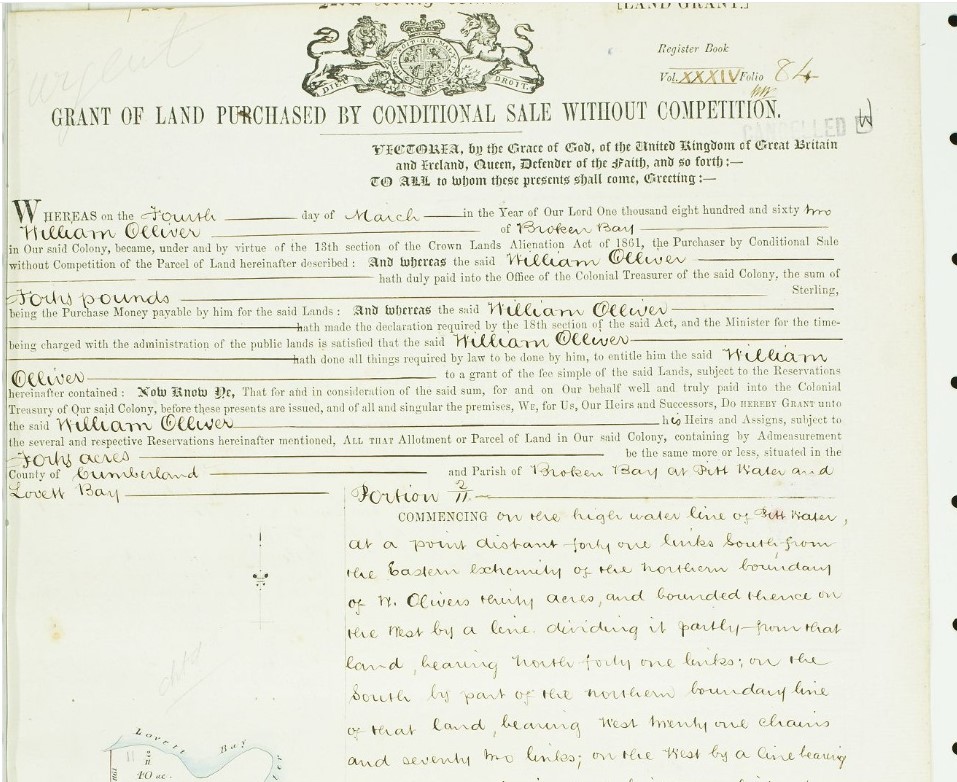 [LAND GRANT.]
urgent
DIEU ET MON DROIT.
Register Book
Vol. XXXIV Folio 84
GRANT OF LAND PURCHASED BY CONDITIONAL SALE WITHOUT COMPETITION.
CANCELLED
VICTORIA, by the Grace of God, of the United Kingdom of Great Britain
and Ireland, Queen, Defender of the Faith, and so forth:—
TO ALL to whom these presents shall come, Greeting:—
WHEREAS on the Fourth day of March in the Year of Our Lord One thousand eight hundred and sixty two
William Olliver of Broken Bay
in Our said Colony, became, under and by virtue of the 13th section of the Crown Lands Alienation Act of 1861, the Purchaser by Conditional Sale
without Competition of the Parcel of Land hereinafter described: And whereas the said William Olliver
hath duly paid into the Office of the Colonial Treasurer of the said Colony, the sum of
Forty pounds Sterling,
being the Purchase Money payable by him for the said Lands: And whereas the said William Olliver
hath made the declaration required by the 18th section of the said Act, and the Minister for the time-
being charged with the administration of the public lands is satisfied that the said William Olliver
hath done all things required by law to be done by him, to entitle him the said William
Olliver to a grant of the fee simple of the said Lands, subject to the Reservations
hereinafter contained: Now Know Ye, That for and in consideration of the said sum, for and on Our behalf well and truly paid into the Colonial
Treasury of Our said Colony, before these presents are issued, and of all and singular the premises, WE, for Us, Our Heirs and Successors, DO HEREBY GRANT unto
the said William Olliver his Heirs and Assigns, subject to
the several and respective Reservations hereinafter mentioned, ALL THAT Allotment or Parcel of Land in Our said Colony, containing by Admeasurement
Forty acres be the same more or less, situated in the
County of Cumberland and Parish of Broken Bay at Pitt Water and
Lovett Bay
Portion 2/11
COMMENCING on the high water line of Pitt Water,
at a point distant forty one links South from
the Eastern extremity of the northern boundary
of W. Olivers thirty acres, and bounded thence on
the West by a line dividing it partly from that
land, bearing North forty one links; on the
South by part of the northern boundary line
of that land, bearing West twenty one chains
and seventy two links; on the West by a line bearing
Lovett Bay
2/11
11
40 ac.